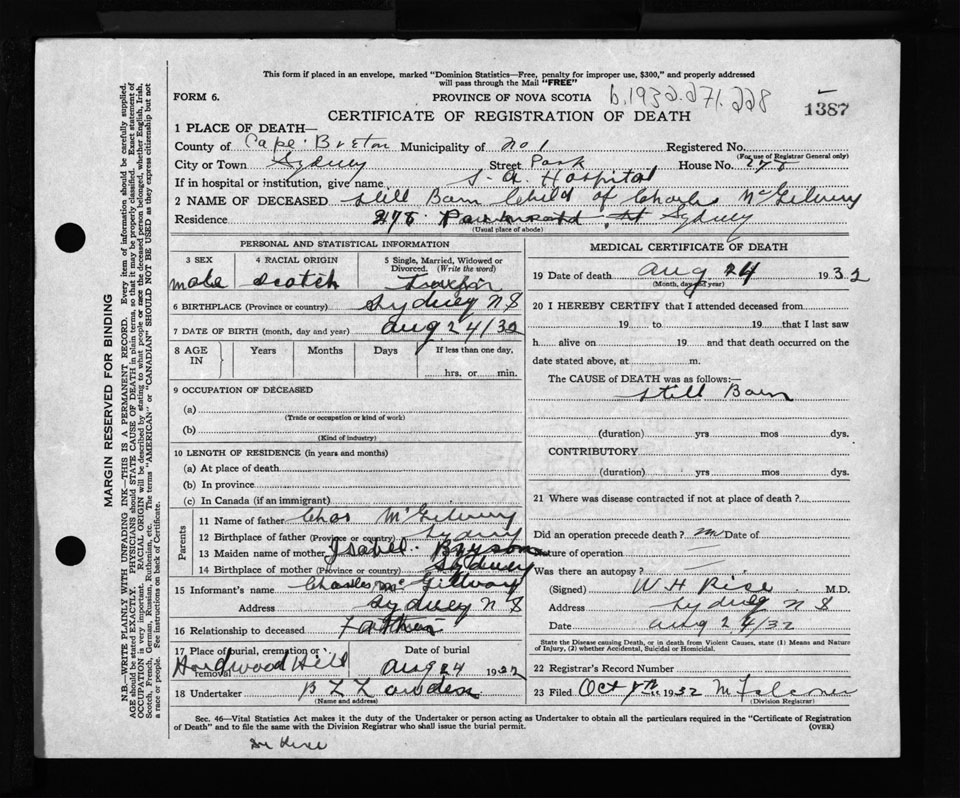 This form if placed in an envelope, marked "Dominion Statistics—Free, penalty for improper use, $300," and properly addressed
will pass through the Mail "FREE"
FORM 6.
PROVINCE OF NOVA SCOTIA
b.1932.271.228
1387
CERTIFICATE OF REGISTRATION OF DEATH
1 PLACE OF DEATH—
County of Cape Breton Municipality of No 1 Registered No.
(For use of Registrar General only)
City or Town Sydney Street Park House No.
If in hospital or institution, give name Hospital
2 NAME OF DECEASED Still Born Child of Charles McGilvery
Residence 278 St Sydney
(Usual place of abode)
PERSONAL AND STATISTICAL INFORMATION
3 SEX male
4 RACIAL ORIGIN Scotch
5 Single, Married, Widowed or Divorced. (Write the word)
6 BIRTHPLACE (Province or country) Sydney NS
7 DATE OF BIRTH (month, day and year) Aug 24/32
8 AGE IN Years Months Days If less than one day, hrs. or min.
9 OCCUPATION OF DECEASED
(a)
(Trade or occupation or kind of work)
(b)
(Kind of industry)
10 LENGTH OF RESIDENCE (in years and months)
(a) At place of death
(b) In province
(c) In Canada (if an immigrant)
Parents
11 Name of father Chas McGilvery
12 Birthplace of father (Province or country) Sydney
13 Maiden name of mother Isabel Bryson
14 Birthplace of mother (Province or country) Sydney
15 Informant's name Charles McGillvary
Address Sydney NS
16 Relationship to deceased Father
17 Place of burial, cremation or removal Hardwood Hill
Date of burial Aug 24 1932
18 Undertaker
(Name and address)
MEDICAL CERTIFICATE OF DEATH
19 Date of death Aug 24 1932
(Month, day and year)
20 I HEREBY CERTIFY that I attended deceased from
19 to 19 that I last saw
h alive on 19 and that death occurred on the
date stated above, at m.
The CAUSE of DEATH was as follows:—
Still Born
(duration) yrs mos dys.
CONTRIBUTORY
(duration) yrs mos dys.
21 Where was disease contracted if not at place of death?
Did an operation precede death? Date of
Nature of operation
Was there an autopsy?
(Signed) W H Rice M.D.
Address Sydney NS
Date Aug 24/32
State the Disease causing Death, or in death from Violent Causes, state (1) Means and Nature
of Injury, (2) whether Accidental, Suicidal or Homicidal.
22 Registrar's Record Number
23 Filed Oct 1932 M Falconer
(Division Registrar)
Sec. 46—Vital Statistics Act makes it the duty of the Undertaker or person acting as Undertaker to obtain all the particulars required in the "Certificate of Registration
of Death" and to file the same with the Division Registrar who shall issue the burial permit.
(OVER)
MARGIN RESERVED FOR BINDING
N.B.—WRITE PLAINLY WITH UNFADING INK—THIS IS A PERMANENT RECORD. Every item of information should be carefully supplied.
AGE should be stated EXACTLY. PHYSICIANS should STATE CAUSE OF DEATH in plain terms, so that it may be properly classified. Exact statement of
OCCUPATION is very important. RACIAL ORIGIN will be described by stating to what people or race the deceased person belonged, whether English, Irish,
Scotch, French, German, Russian, Ruthenian, etc. The terms "AMERICAN" or "CANADIAN" SHOULD NOT BE USED as they express citizenship but not
a race or people. See instructions on back of Certificate.